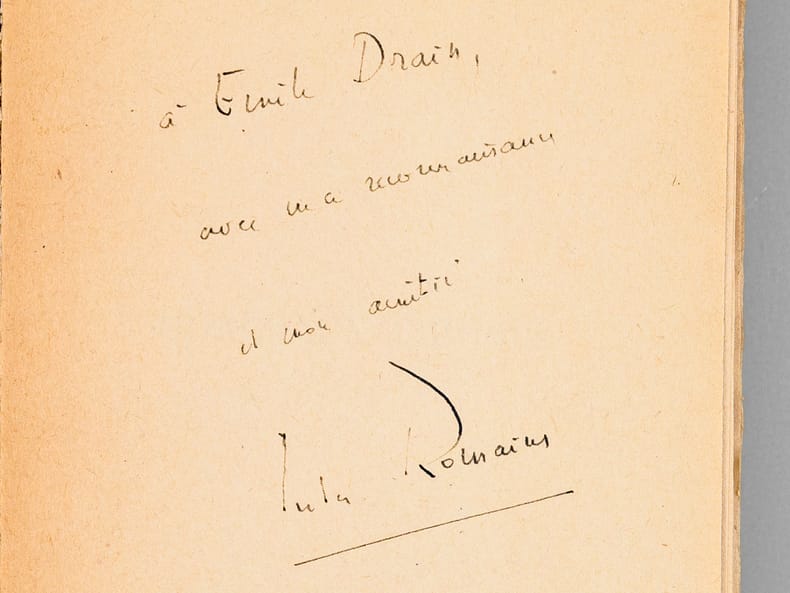 à Emile Drain,
avec ma reconnaissance
et mon amitié
Jules Romains